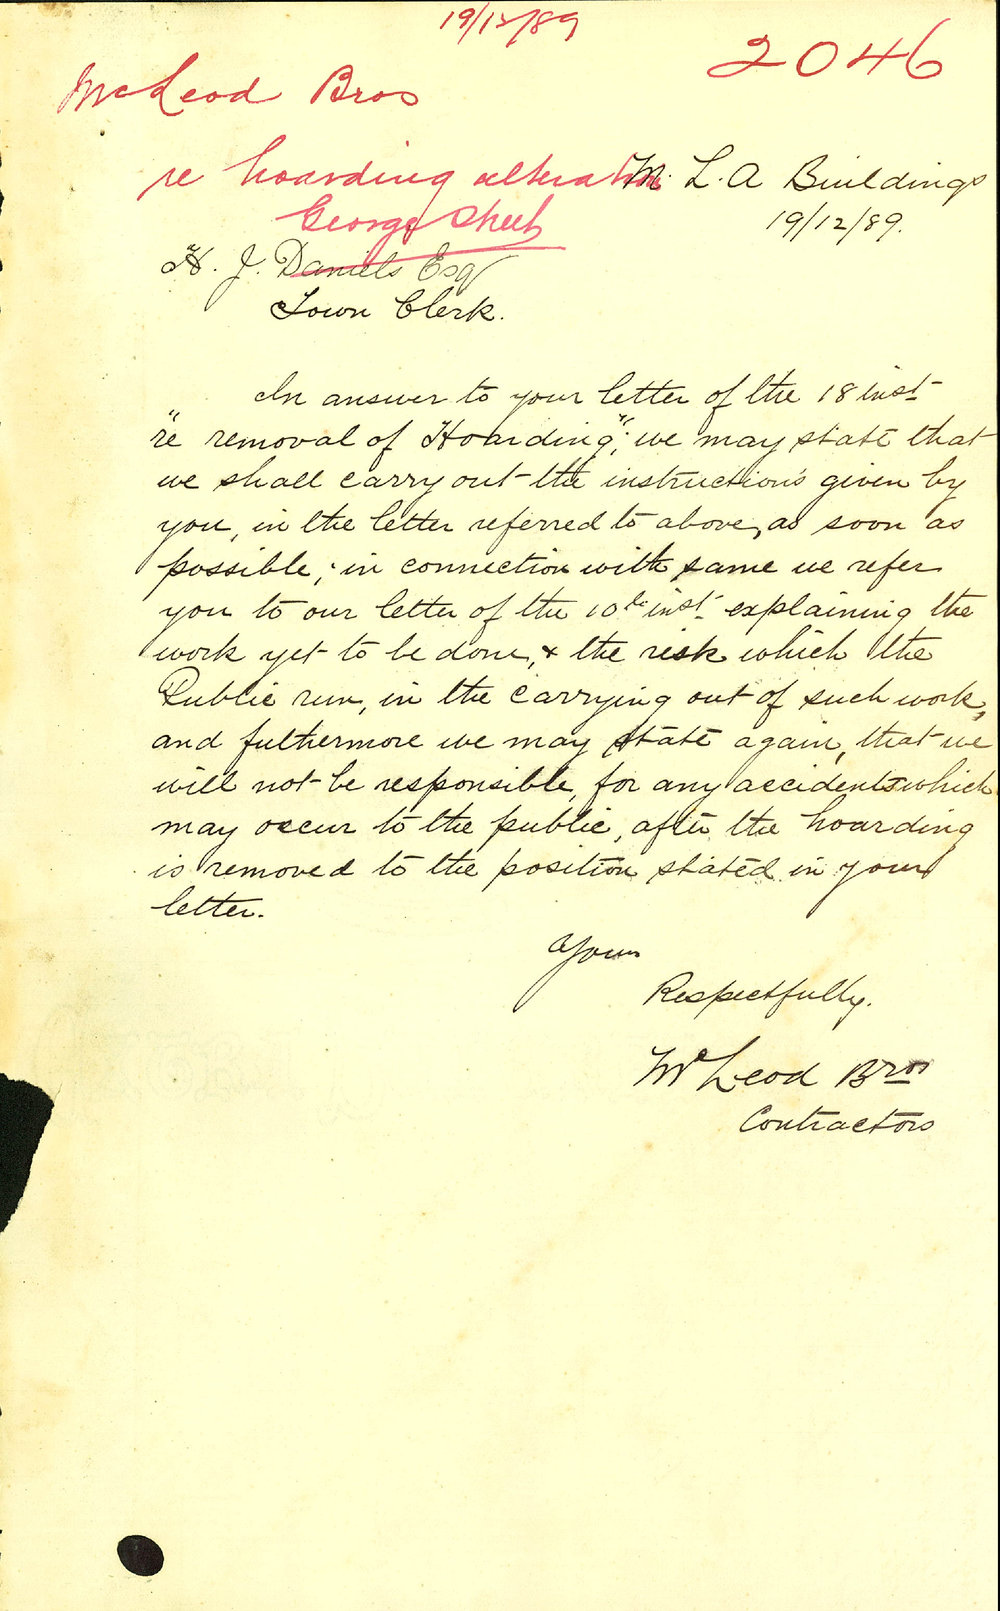 19/12/89
2046
McLeod Bros
re hoarding alteration
George Street
M. L. A Buildings
19/12/89.
H. J. Daniels Esq
Town Clerk.
In answer to your letter of the 18 inst
"re removal of Hoarding", we may state that
we shall carry out the instructions given by
you, in the letter referred to above, as soon as
possible; in connection with same we refer
you to our letter of the 10th inst. explaining the
work yet to be done, & the risk which the
Public run, in the carrying out of such work,
and futhermore we may state again, that we
will not be responsible, for any accidents which
may occur to the public, after the hoarding
is removed to the position stated in your
letter.
Yours
Respectfully.
McLeod Bros
Contractors